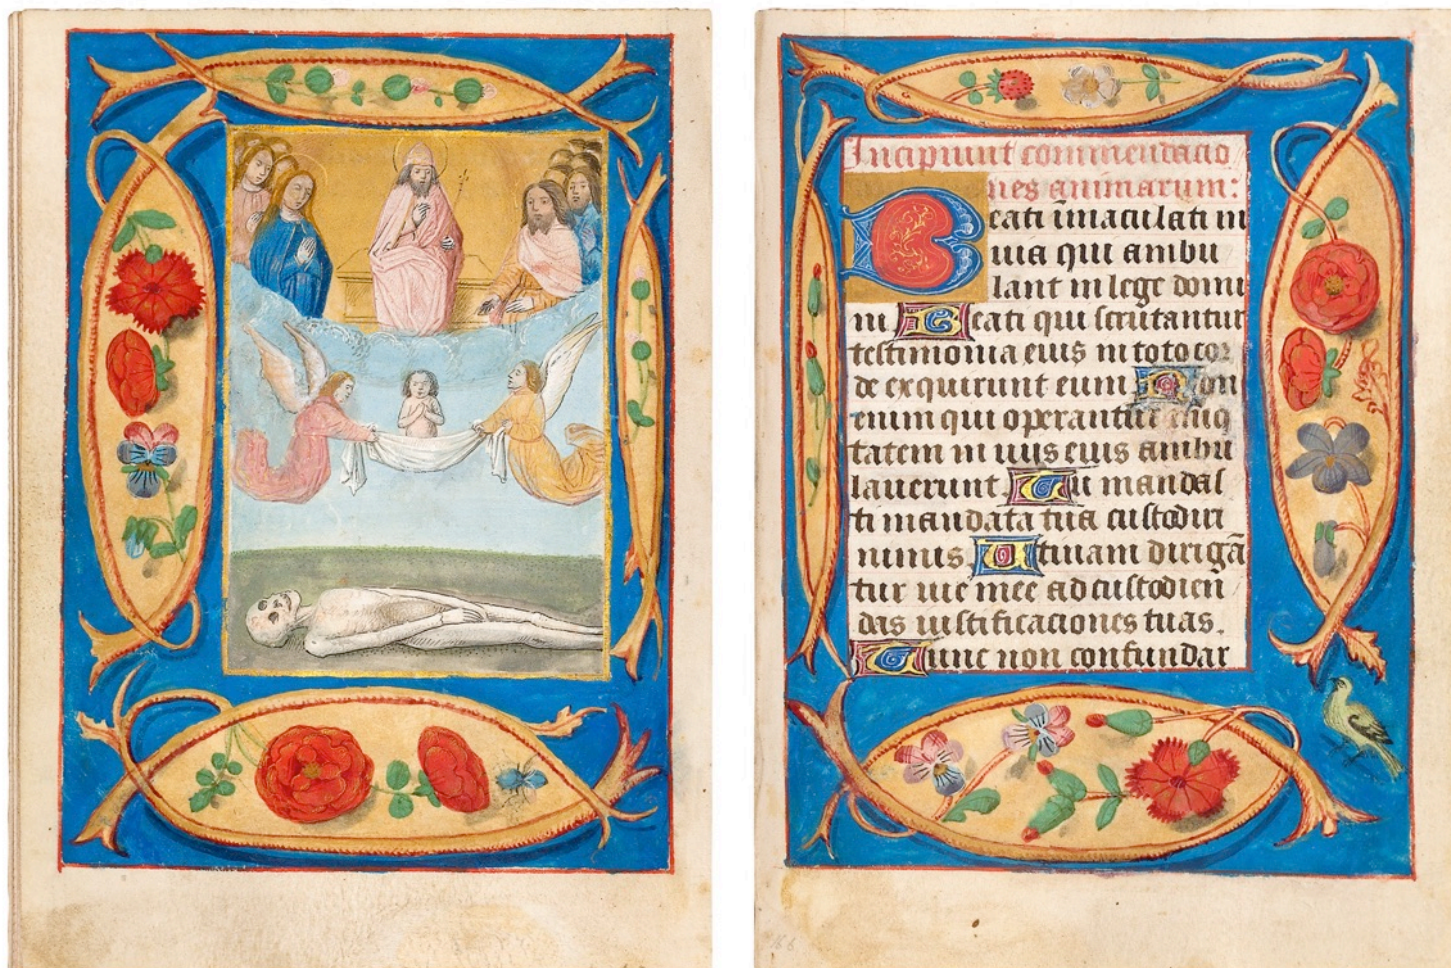 Incipiunt commendacio
nes animarum:
Beati īmaculati in
uia qui ambu
lant in lege domi
ni Beati qui scrutantur
testimonia eius in toto cor
de exquirunt eum Non
enim qui operantur iniq
tatem in uiis eius ambu
lauerunt Tu mandas
ti mandata tua custodiri
nimis Utinam dirigā
tur uie mee ad custodien
das iustificaciones tuas.
Tunc non confundar